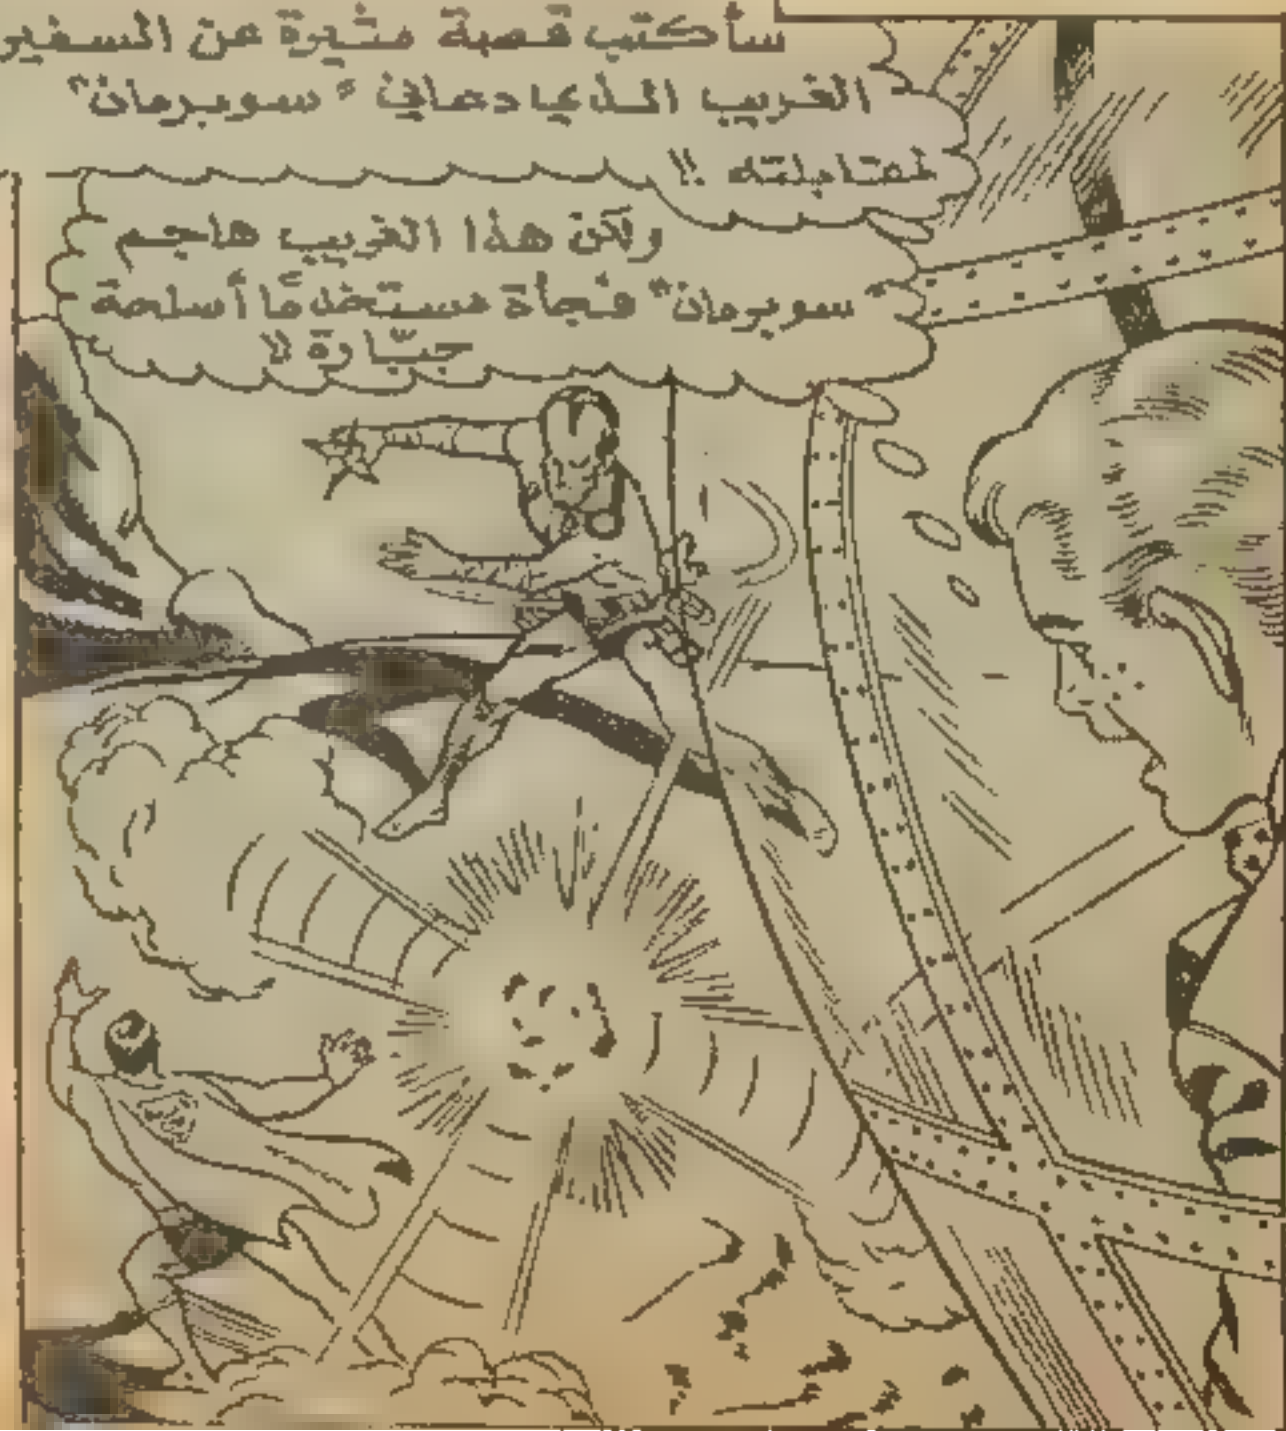 سأكتب قصة مثيرة عن السفير
الغريب الذي دعاني "سوبرمان"
لمقابلته !!
ولكن هذا الغريب هاجم
"سوبرمان" فجأة مستخدمًا أسلحة
جبّارة !!